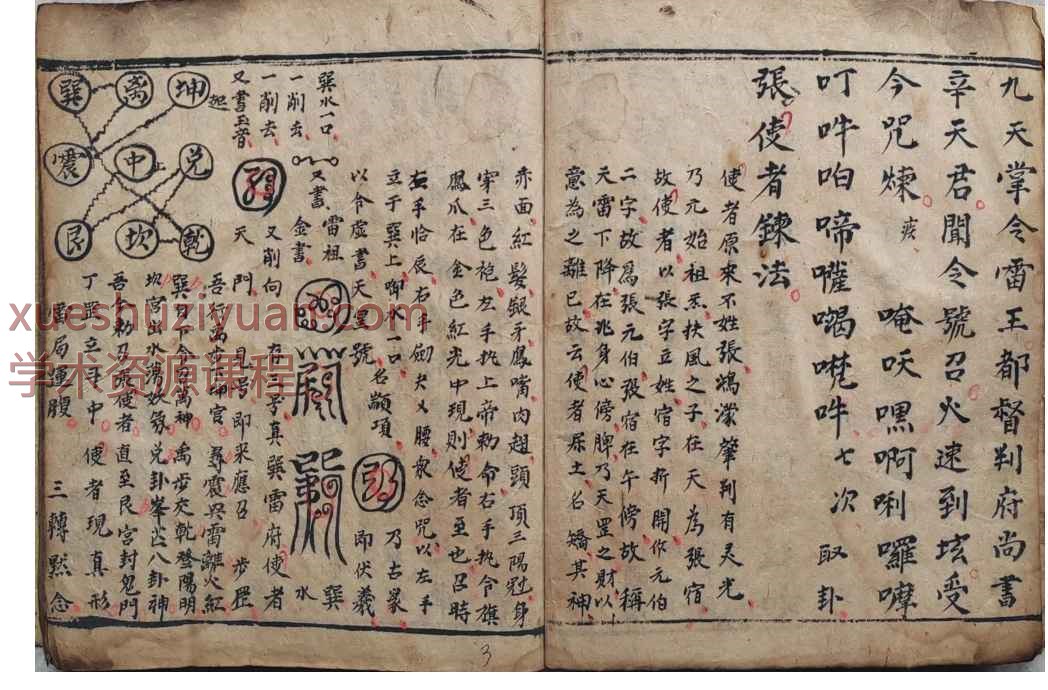 九天掌令雷王都督判府尚書
辛天君聞令號召火速到坛受
今咒煉 疾 唵㕭嘿啊唎囉嘧
叮吽啪啼嚾噶嘫吽七次 取卦
張使者鍊法
使者原來不姓張鴻濛肇判有灵光
乃元始祖炁扶風之子在天為張宿
故使者以張字立姓宿字折開作元伯
二字故為張元伯張宿在午傍故稱
天雷下降在兆身心傍脾乃天罡之財以
意為之離已故云使者屎土名矯其神
赤面紅髮銀牙鳳嘴肉翅頭頂三陽冠身
穿三色袍左手执上帝勅命右手执令旗
鳳爪在金色紅光中現則使者至也召時
左手恰辰右手劍夬乂腰最念咒以左手
立于巽上啣水一口
以令虛書天皇號 名顓項 即伏羲
巽水一口
一削去 又書 雷祖
一削去 金書
又書玉音 天 又削向
存三号真巽雷府使者
門 見号即來應召 步罡
吾行禹步坤宮 尋震兴雷離火紅
巽 萬神 禹步交乾登陽明
坎宮 水 妖氛兑卦峯 八卦神
吾今勅召 使者直至艮宮封鬼門
丁罡立斗中 使者現真形
雷局運腹 三轉默念
巽 離 坤 起
震 中 兑
艮 坎 乾
巽
水
3
xueshuziyuan.com
学术资源课程